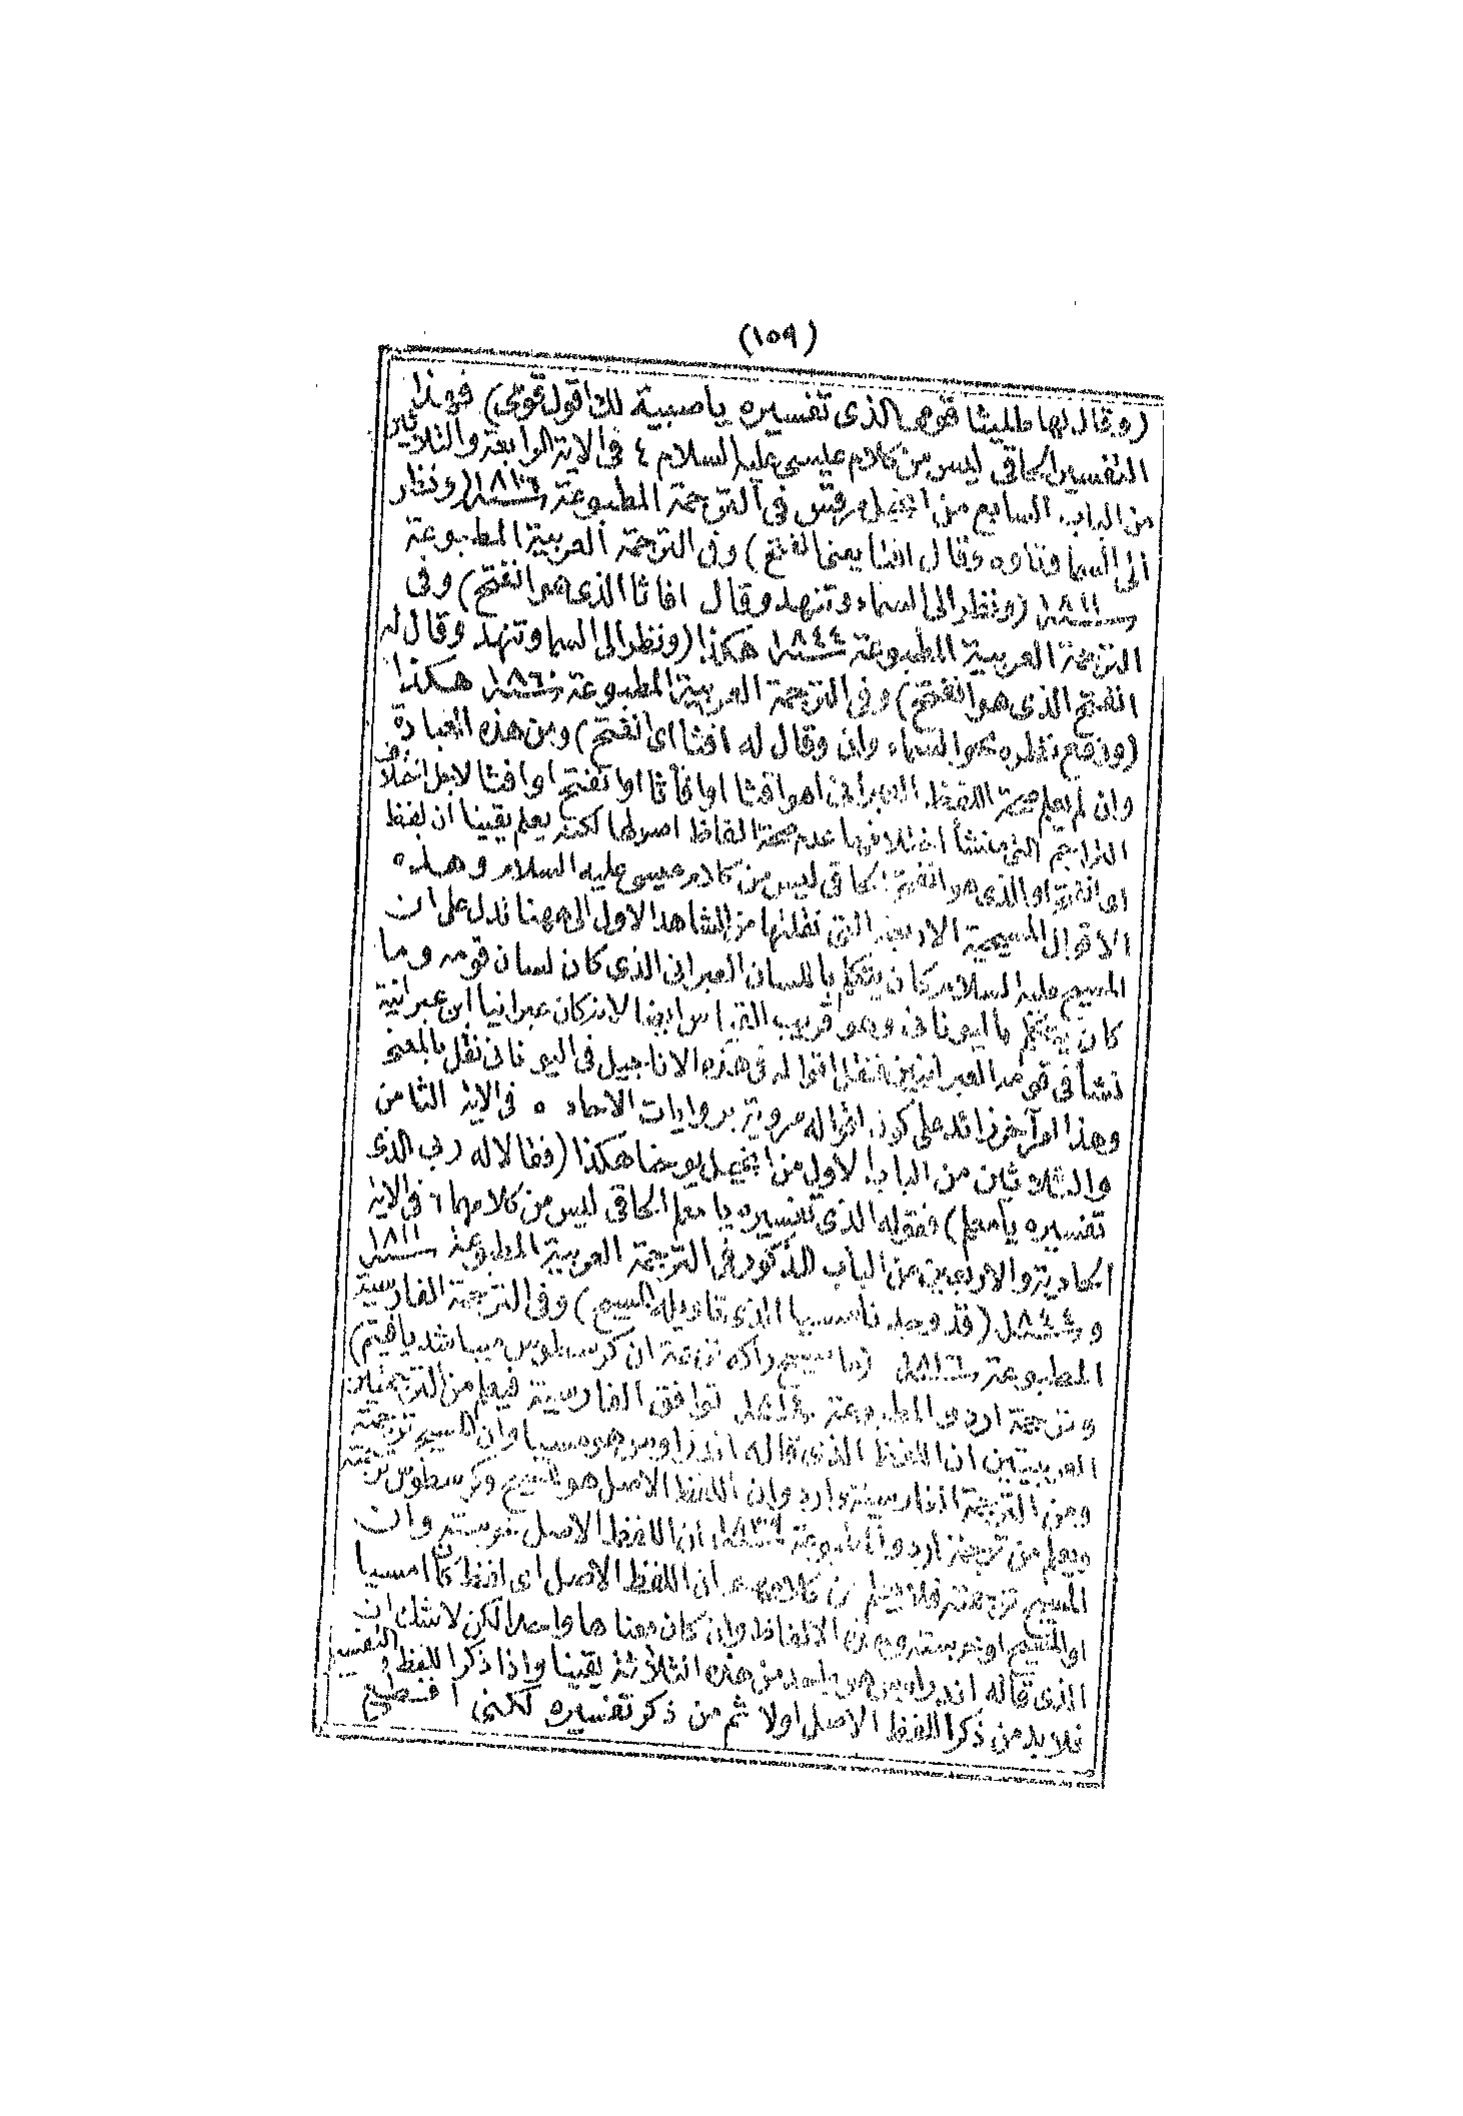 (١٥٩)
(وقال لها طليثا قومى الذى تفسيره ياصبية لك اقول قومى) فهذا
التفسير الحاقى ليس من كلام عيسى عليه السلام ٤ فى الاية الرابعة والثلاثين
من الباب السابع من انجيل مرقس فى الترجمة المطبوعة سنة ١٨١٦ (ونظر
الى السما وتاوه وقال افثا يعنى انفتح) وفى الترجمة العربية المطبوعة
سنة ١٨١١ (ونظر الى السماء وتنهد وقال افاثا الذى هو انفتح) وفى
الترجمة العربية المطبوعة سنة ١٨٤٤ هكذا (ونظر الى السما وتنهد وقال له
انفتح الذى هو انفتح) وفى الترجمة العربية المطبوعة سنة ١٨٦٠ هكذا
(ورفع نظره نحو السماء وان وقال له افثا اى انفتح) ومن هذه العبارة
وان لم يعلم صحة اللفظ العبرانى اهو افثا او افاثا او انفتح او افثا لاجل اختلاف
التراجم التى منشأ اختلافها عدم صحة الفاظ اصولها لكنه يعلم يقينا ان لفظ
اى انفتح او الذى هو انفتح الحاقى ليس من كلام عيسى عليه السلام وهذه
الاقوال المسيحية الاربعة التى نقلتها من الشاهد الاول الى ههنا تدل على ان
المسيح عليه السلام كان يتكلم باللسان العبرانى الذى كان لسان قومه وما
كان يتكلم باليونانى وهو قريب القياس ايضا لانه كان عبرانيا ابن عبرانية
نشأ فى قومه العبرانيين فنقل اقواله فى هذه الاناجيل فى اليونانى نقل بالمعنى
وهذا امر آخر زائد على كون اقواله مروية بروايات الاحاد ٥ فى الاية الثامن
والثلاثين من الباب الاول من انجيل يوحنا هكذا (فقالا له ربى الذى
تفسيره يا معلم) فقوله الذى تفسيره يا معلم الحاقى ليس من كلامهما ٦ فى الاية
الحادية والاربعين من الباب المذكور فى الترجمة العربية المطبوعة سنة ١٨١١
و سنة ١٨٤٤ (قد وجدنا مسيا الذى تاويله المسيح) وفى الترجمة الفارسية
المطبوعة سنة ١٨١٦ (ما مسيح راكه ترجمة ان كرسطوس ميباشد يافتيم)
وترجمة اردو المطبوعة سنة توافق الفارسية فيعلم من الترجمتين
العربيتين ان اللفظ الذى قاله اندراوس هو مسيا وان المسيح ترجمته
ومن الترجمة الفارسية واردو ان اللفظ الاصل هو المسيح وكرسطوس ترجمته
ويعلم من ترجمة اردو المطبوعة سنة ان اللفظ الاصل خرسته وان
المسيح ترجمته فلا يعلم من كلامهم ان اللفظ الاصل اى لفظ كان امسيا
او المسيح او خرسته وهذه الالفاظ وان كان معناها واحدا لكن لا شك ان
الذى قاله اندراوس هو واحد من هذه الثلاثة يقينا واذا ذكر اللفظ والتفسير
فلابد من ذكر اللفظ الاصل اولا ثم من ذكر تفسيره لكنى اقطع